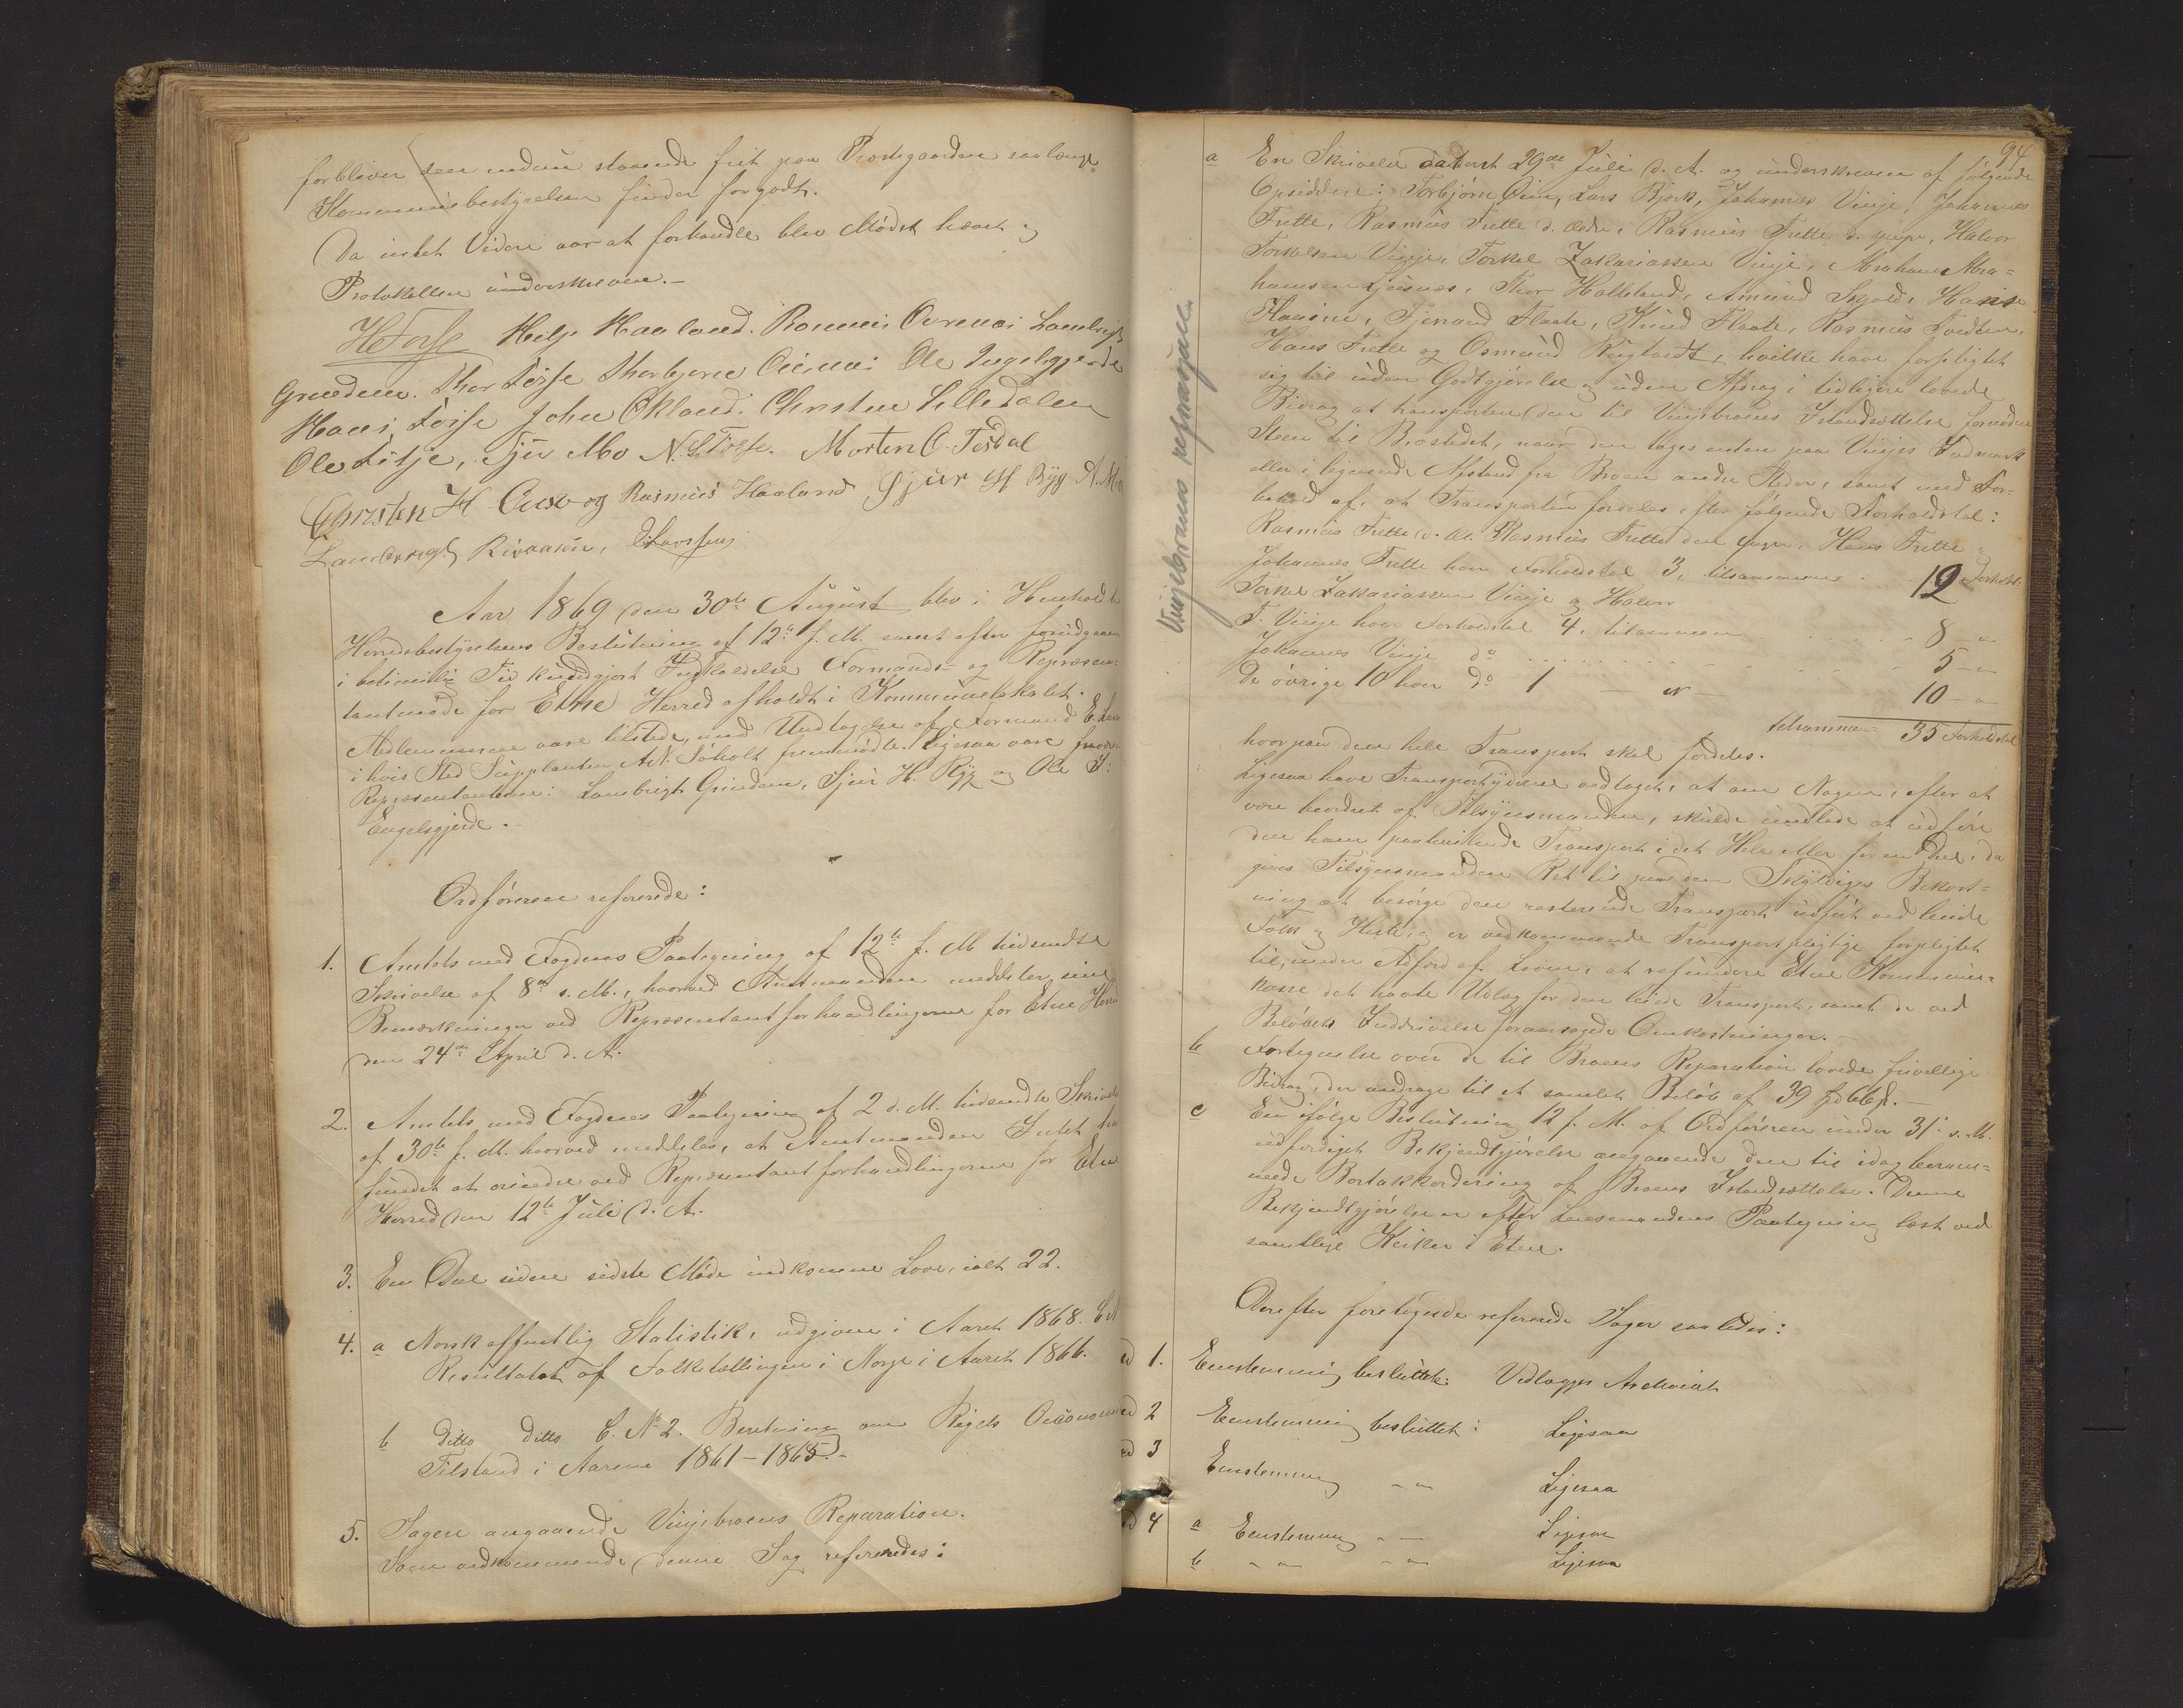 forbliver den endnu staaende frit paa Præstegaarden saalænge
Kommunebestyrelsen finder for godt.
Da intet Videre var at forhandle blev Mødet hævet og
Protokollen underskreven.-
HFosse Helge Haaland. Lambrigt
Grindem. Thor Fosse Thorbjørn Ole Ingelsgjerde
Hans Fosse John Økland. Christen Silledalen
Ole Litje, Sjur Mo N. S. Fosse. Morten O. Tesdal
Christen H og Rasmus Haaland Sjur H Ryg
Lambregt
Aar 1869 den 30te August blev i Henhold til
Herredsbestyrelsens Beslutning af 12te f. M. samt efter forudgaaen
i betimelig Tid kundgjort Indkaldelse Formands- og Repræsen-
tantmøde for Etne Herred afholdt i Kommunelokalet.
Medlemmerne vare tilstede, med Undtagelse af Formand
i hvis Sted Supplanten A. N. Søholt fremmødte. Ligesaa vare
Repræsentanterne: Lambrigt Grindem, Sjur H. Ryg og Ole I:
Engelsgjerde.-
Ordføreren refererede:
1. Amtets med Fogdens Paategning af 12te f. M tilsendte
Skrivelse af 8de s. M., hvorved Amtmanden meddeler sine
Bemærkninger ved Repræsentantforhandlingerne for Etne Herred
den 24de April d. A.
2. Amtets med Fogdens Paategning af 2 d. M. tilsendte Skrivelse
af 30te f. M. hvorved meddeles, at Amtmanden Intet har
fundet at erindre ved Repræsentantforhandlingerne for Etne
Herred den 12te Juli d. A.
3. En Deel siden sidste Møde indkomne Love, ialt 22.
4. a Norsk offentlig Statistik, udgiven i Aaret 1868.
Resultatet af Folketællingen i Norge i Aaret 1866.
b ditto ditto C. No 2. Beretning om Rigets
Tilstand i Aarene 1861-1865.-
5. Sagen angaaende Vinjebroens Reparation.
Som vedkommende denne Sag refereredes:
94
Vinjebroens reparasjon
a En Skrivelse dateret 29de Juli d. A. og underskreven af følgende
Opsiddere: Torbjørn Lars Bjørk, Johannes Vinje, Johannes
Frette, Rasmus Frette d. ældre, Rasmus Frette d. yngre, Halvor
Torkelsen Vinje, Torkel Zakariassen Vinje, Abraham Abra=
hamsen Thor Halleland, Amund Skjold, Hans
Flaate, Knud Flaate, Rasmus Tvedten,
Hans Frette og Osmund hvilke have forpligtet
sig til uden Godtgjørelse og uden Afdrag i tidligere lovede
Bidrag at transportere den til Vinjebroens Istandsættelse fornødne
Steen til Brostedet, naar den tages enten paa Vinjes Indmark
eller i lignende Afstand fra Broen andre Steder, samt med For-
behold af, at Transporten fordeles efter følgende Forholdstal:
Rasmus Frette d. æl. Rasmus Frette den yngre, Hans Frette
Johannes Frette hver Forholdstal 3, tilsammen . 12 Forholdst.
Torkel Zakariassen Vinje og Halvor
T. Vinje hver Forholdstal 4, tilsammen . . . . 8 - "
Johannes Vinje do . . . . . . 5 - "
De øvrige 10 hver do 1 - " - 10 - "
tilsammen 35 Forholdstal
hvorpaa den hele Transport skal fordeles.
Ligesaa have Transportyderne vedtaget, at om Nogen, efter at
være beordret af Tilsynsmanden, skulde undlade at udføre
den ham paahvilende Transport i det Hele eller for en Deel, da
gives Tilsynsmanden Ret til paa den Skyldiges Bekost=
ning at besørge den resterende Transport udført ved leiede
Folk og Heste, og er vedkommende Transportpligtige forpligtet
til, under Adfærd af Loven, at refundere Etne Kommune=
kasse det havte Udlæg for den leiede Transport, samt de ved
Beløbets Inddrivelse foraarsagede Omkostninger.-
b Fortegnelse over de til Broens Reparation lovede frivillige
Bidrag, der andrage til et samlet Beløb af 39 Spd 66 s.-
c En ifølge Beslutning 12 f. M. af Ordføreren under 31te s. M.
udfærdiget Bekjendtgjørelse angaaende den til idag beram=
mede Bortakkordering af Broens Istandsættelse. Denne
Bekjendtgjørelse er efter Lensmandens Paategning læst ved
samtlige Kirker i Etne.
Derefter foretoges de refererede Sager saaledes:
ad 1. Eenstemmig besluttet: Vedlægges Archivet
ad 2 Eenstemmig besluttet: Ligesaa
ad 3 Eenstemmig - " - Ligesaa
ad 4 a Eenstemmig - " - Ligesaa
b - " - - " - Ligesaa